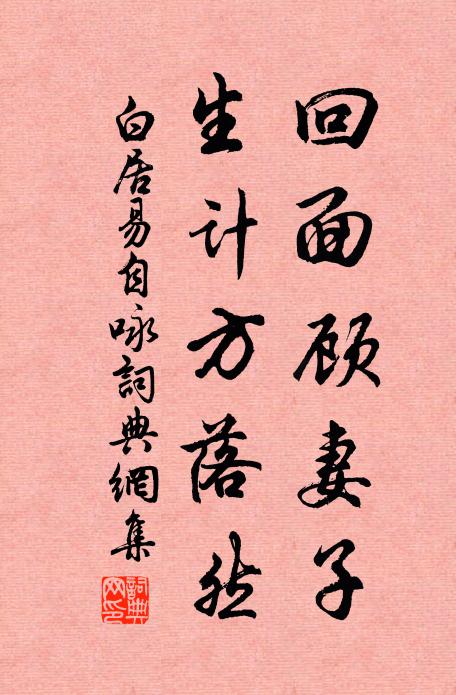 回面顾妻子
生计方落然
白居易自咏詞典網集
詞典网印